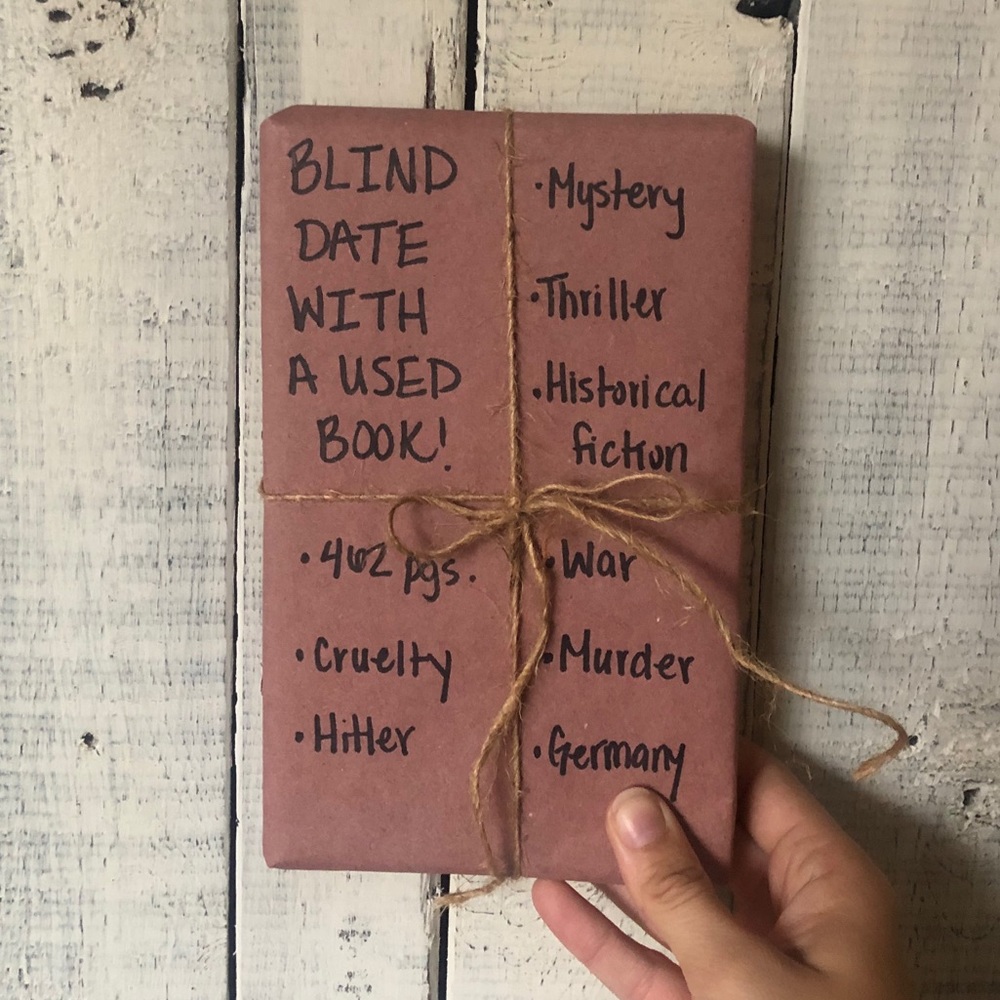 BLIND
DATE
WITH
A USED
BOOK!
• 462 pgs.
• Cruelty
• Hitler
• Mystery
• Thriller
• Historical
fiction
• War
• Murder
• Germany